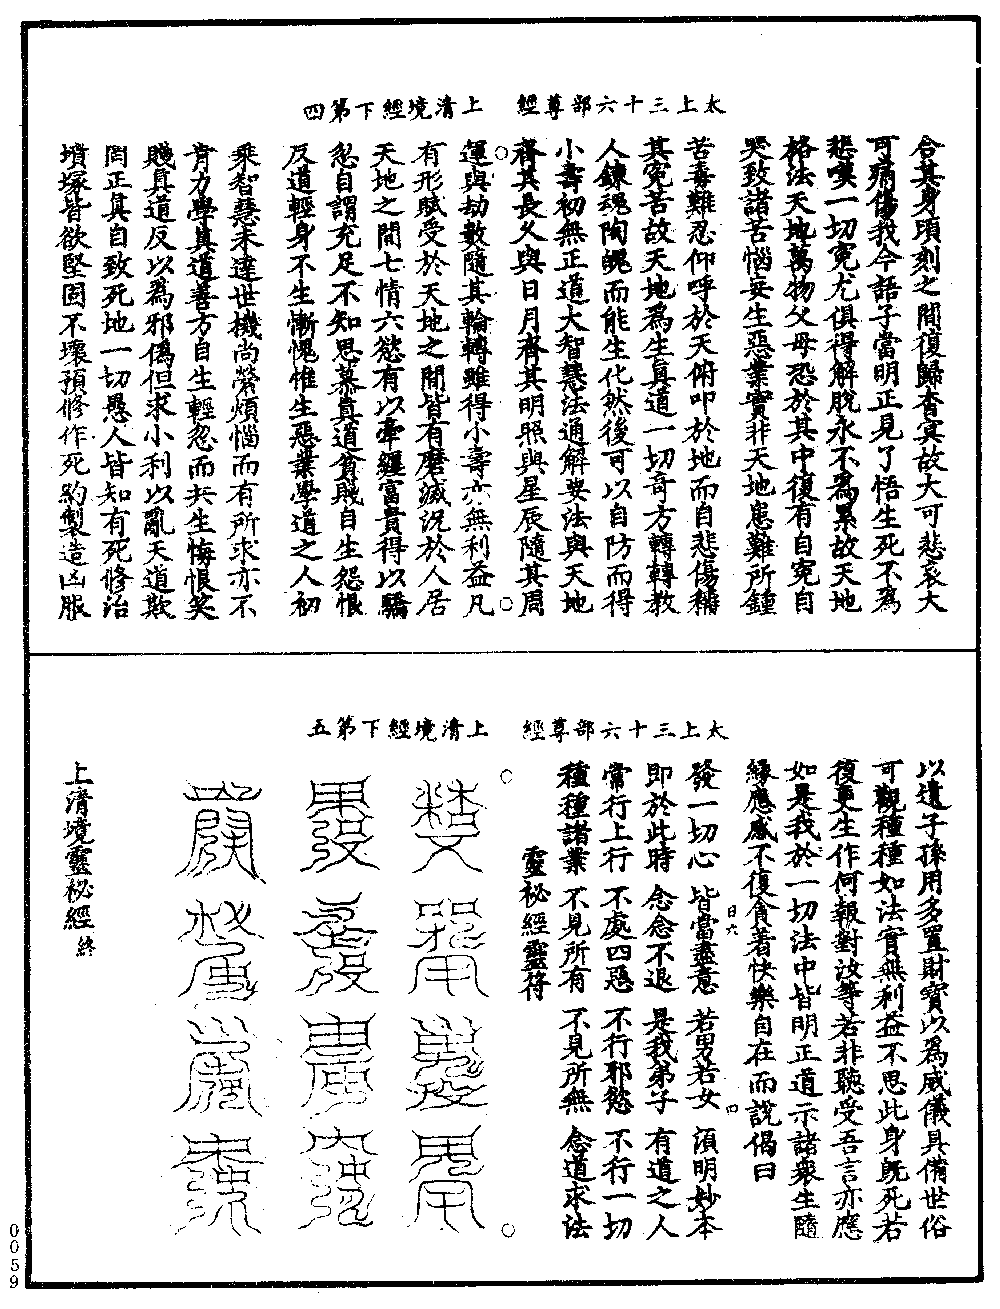 太上三十六部尊經　上清境經下第四
合其身頃刻之間復歸杳冥故大可悲哀大
可痛傷我今語子當明正見了悟生死不為
悲嘆一切冤尤俱得解脫永不為累故天地
格法天地萬物父母恐於其中復有自冤自
哭致諸苦惱妄生惡業實非天地患難所鍾
苦毒難忍仰呼於天俯叩於地而自悲傷稱
其冤苦故天地為生真道一切奇方轉轉教
人鍊魂陶魄而能生化然後可以自防而得
小壽初無正道大智慧法通解要法與天地
齊其長久與日月齊其明照與星辰隨其周
運與劫數隨其輪轉雖得小壽亦無利益凡
有形賦受於天地之間皆有磨滅況於人居
天地之間七情六慾有以牽纏富貴得以驕
忽自謂充足不知思慕真道貧賤自生怨恨
反道輕身不生慚愧惟生惡業學道之人初
乘智慧未達世機尚縈煩惱而有所求亦不
肯力學其道善方自生輕忽而失生悔恨笑
賤真道反以為邪偽但求小利以亂天道欺
罔正真自致死地一切愚人皆知有死修治
墳塚皆欲堅固不壞預修作死約製造凶服
太上三十六部尊經　上清境經下第五
以遺子孫用多置財寶以為威儀具備世俗
可觀種種如法實無利益不思此身既死若
復更生作何報對汝等若非聽受吾言亦應
如是我於一切法中皆明正道示諸衆生隨
緣應感不復貪著快樂自在而說偈曰
發一切心　皆當盡意　若男若女　須明妙本
日六　四
即於此時　念念不退　是我弟子　有道之人
常行上行　不處四惡　不行邪慾　不行一切
種種諸業　不見所有　不見所無　念道求法
靈祕經靈符
上清境靈祕經終
0059